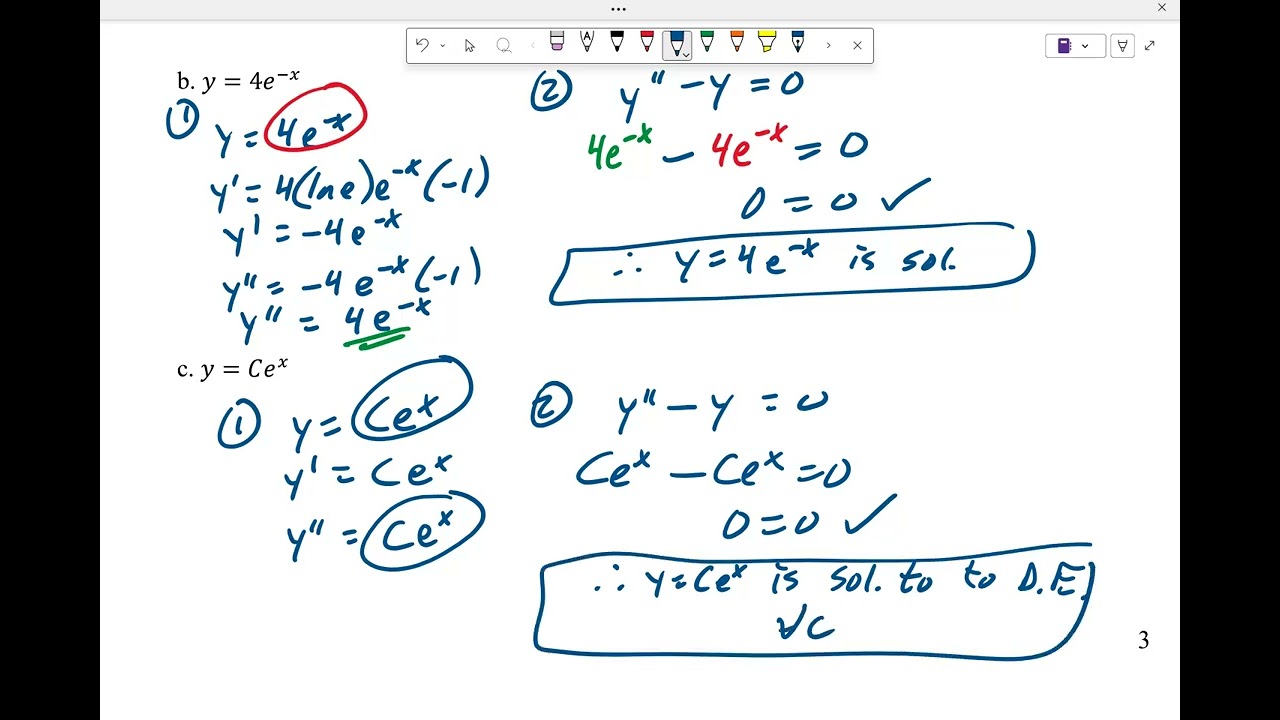 b. y = 4e^{-x}
① y = 4e^{-x}
y' = 4(ln e)e^{-x}(-1)
y' = -4e^{-x}
y'' = -4e^{-x}(-1)
y'' = 4e^{-x}
② y'' - y = 0
4e^{-x} - 4e^{-x} = 0
0 = 0 ✓
∴ y = 4e^{-x} is sol.
c. y = Ce^x
① y = Ce^x
y' = Ce^x
y'' = Ce^x
② y'' - y = 0
Ce^x - Ce^x = 0
0 = 0 ✓
∴ y = Ce^x is sol. to to D.E.
∀C
3